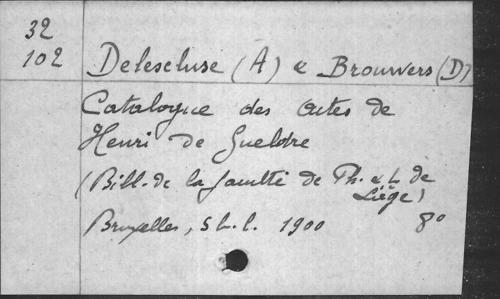 32
102 Delescluse (A) & Brouwers (D)
Catalogue des actes de
Henri de Gueldre
(Bill. de la faculté de Ph. & L. de
Liège)
Bruxelles, s.l. 1900 8°